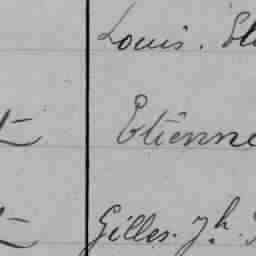 Louis.
Etienne
Gilles. Jh.